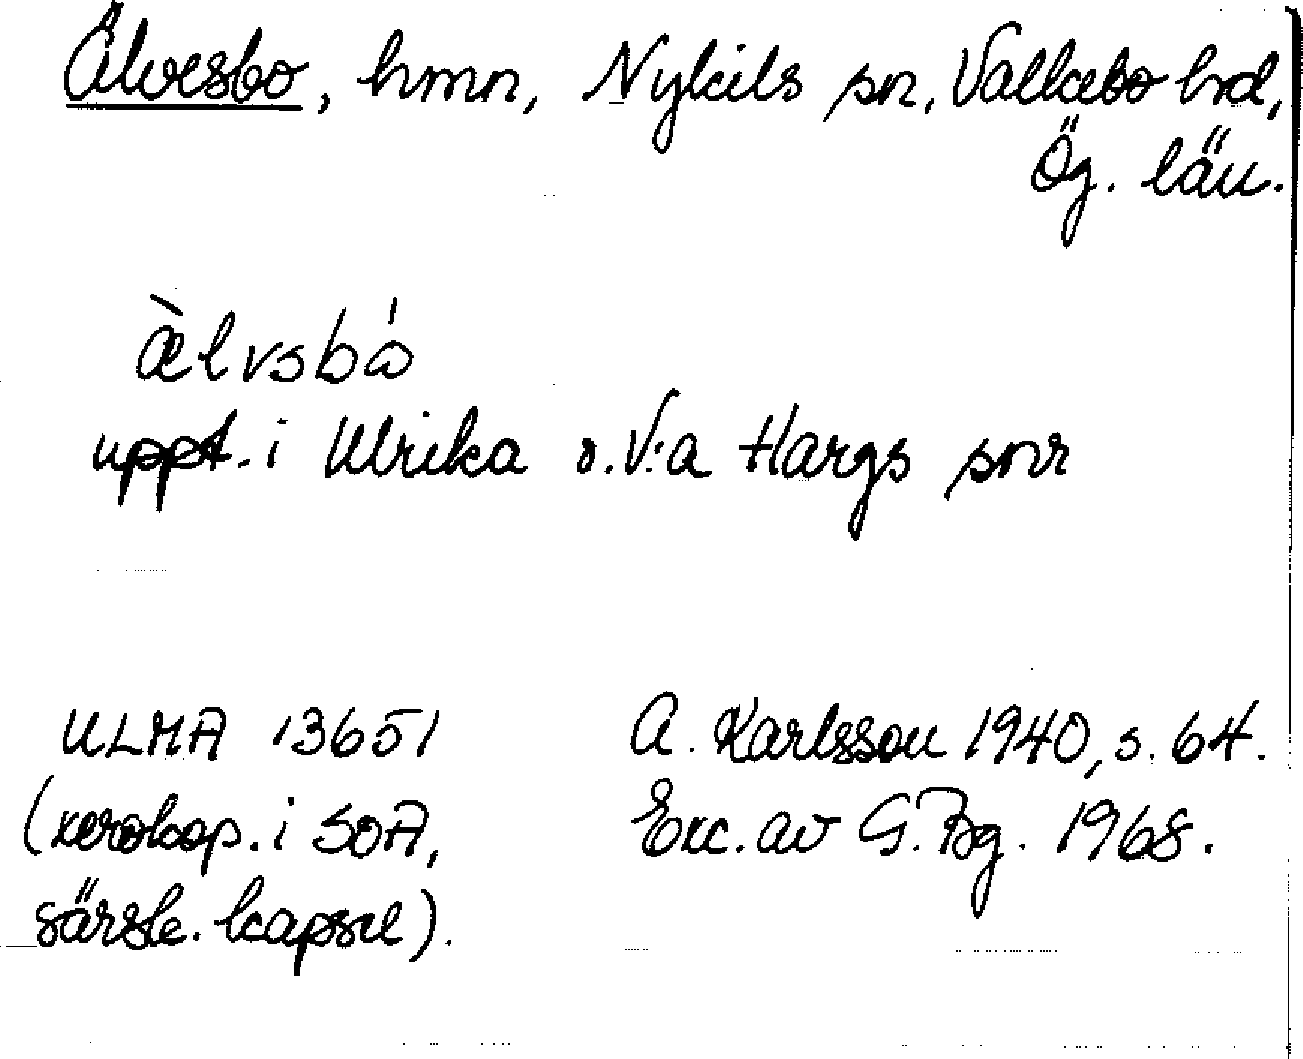 Älvesbo, hmn, Nykils sn, Valkebo hd,
Ög. län.
æ̀lvsbó
uppt. i Ulrika o. V:a Hargs snr
ULMA 13651
(xerokop. i SOA,
särsk. kapsel).
A. Karlsson 1940, s. 64.
Exc. av G. Bg. 1968.